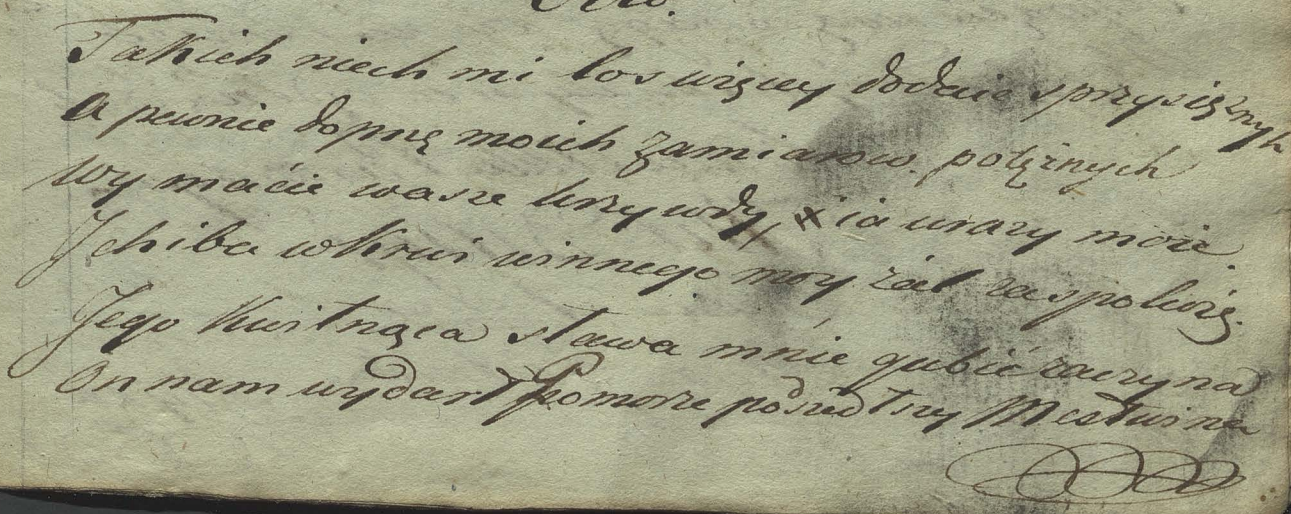 Takich niech mi los więcey dodaie sprzysiężnych
A pewnie dopnę moich zamiarow potężnych
Wy macie wasze krzywdy, ia urazy moie
I chiba w krwi winnego moy żal zaspokoię.
Jego kwitnąca sława mnie gubić zaczyna
On nam wydarł Pomorze pośzedłszy Mestwina